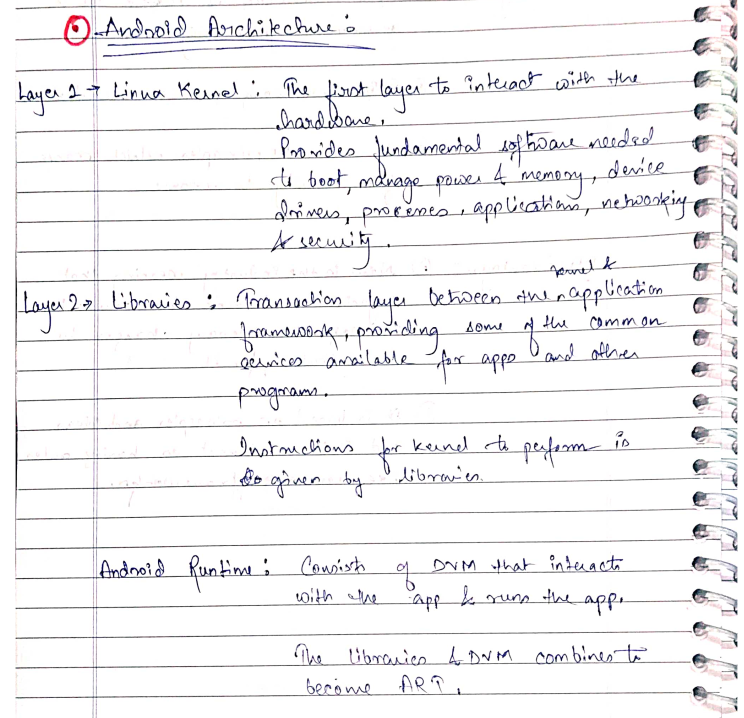 Android Architecture :
Layer 1 → Linux Kernel : The first layer to interact with the
hardware.
Provides fundamental software needed
to boot, manage power & memory, device
drivers, processes, applications, networking
& security.
kernel &
Layer 2 → Libraries : Transaction layer between the application
framework, providing some of the common
services available for apps and other
programs.
Instructions for kernel to perform is
given by libraries.
Android Runtime : Consists of DVM that interacts
with the app & runs the app.
The libraries & DVM combines to
become ART.